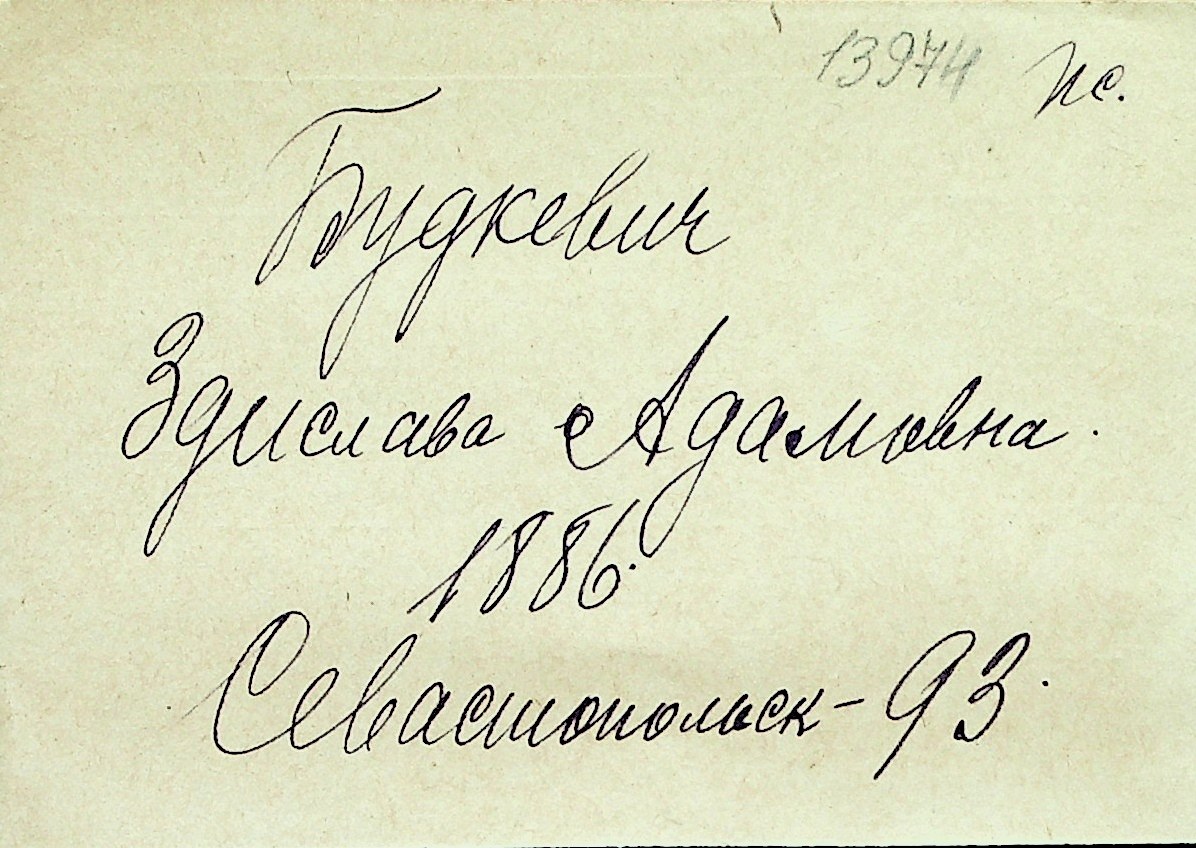 13974 пс.
Будкевич
Здислава Адамовна.
1886.
Севастопольск-93.